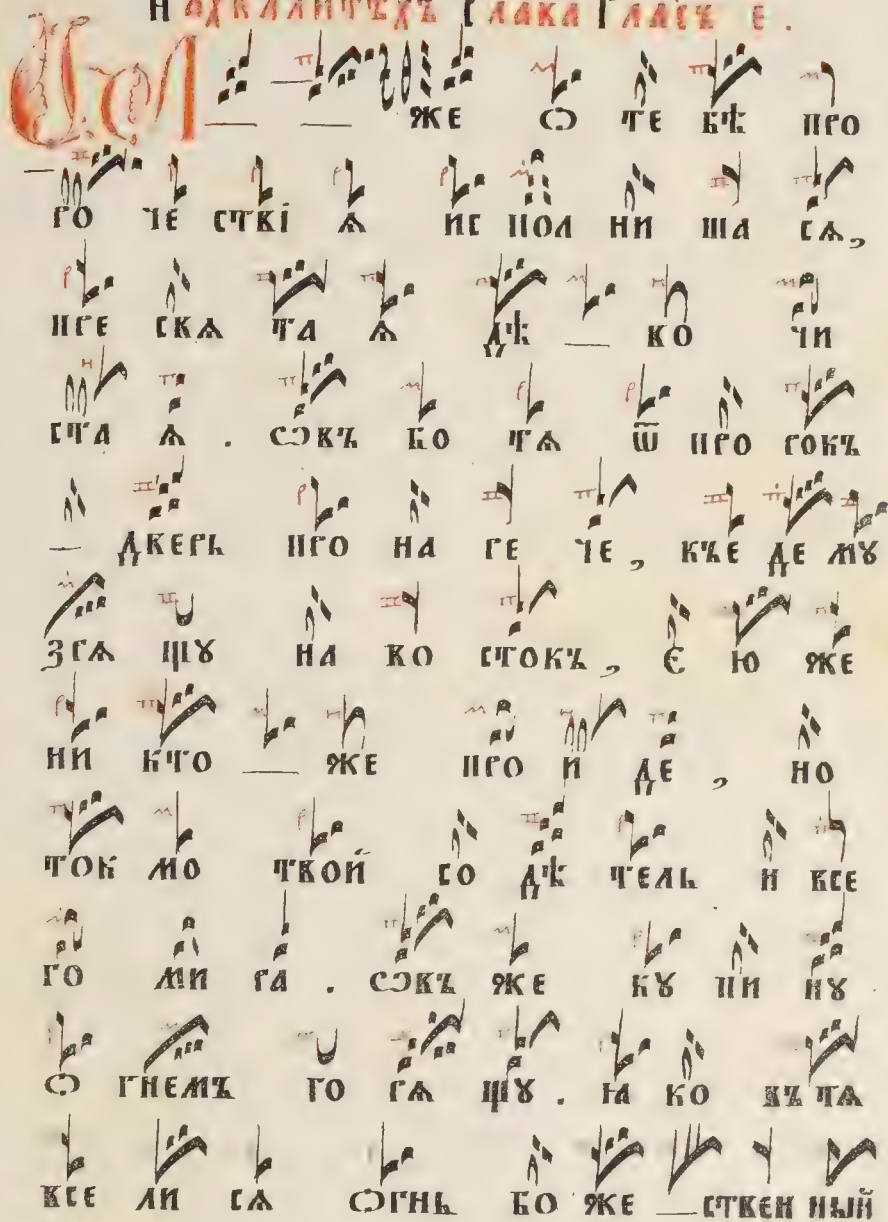 На хвалитѣхъ слава гласъ є .
Ꙗ — — же ѡ тебѣ про
ро че сткі ѧ ис пол ни ша сѧ,
пре свѧ та ѧ дѣ — во чи
ста ѧ . сѻвъ бо тѧ ѿ про рокъ
— дверь про на ре че , къе де му
зрѧ щꙋ на во стокъ , є ю же
ни кто — же про й де , но
ток мо твой со дѣ тель и все
го ми ра . сѻвъ же кꙋ пи нꙋ
ѡ гнемъ го рѧ щꙋ . ꙗ ко въ тѧ
все ли сѧ ѻгнь бо же — ствен ный